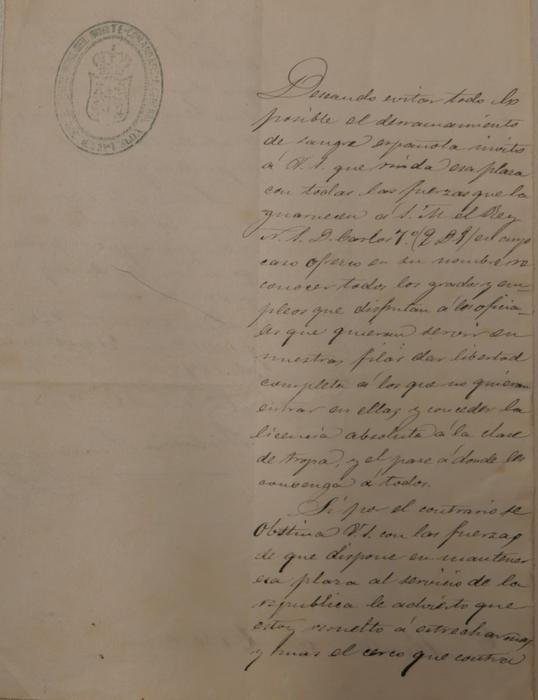 DEL NORTE - COMANDANCIA GENERAL
Deseando evitar todo lo
posible el derramamiento
de sangre española invito
á V. S. que rinda esa plaza
con todas las fuerzas que la
guarnecen á S. M. el Rey
N. S. D. Carlos 7.º (Q. D. G.) en cuyo
caso ofrezco en su nombre re
conocer todos los grados y em=
pleos que disfrutan á los oficia=
les que quieran servir en
nuestras filas dar libertad
completa á los que no quieran
entrar en ellas, y conceder la
licencia absoluta á la clase
de tropa, y el pase á donde les
convenga á todos.
Si por el contrario se
obstina V. S. con las fuerzas
de que dispone en mantener
esa plaza al servicio de la
republica le advierto que
estoy resuelto á estrechar mas
y mas el cerco que contra